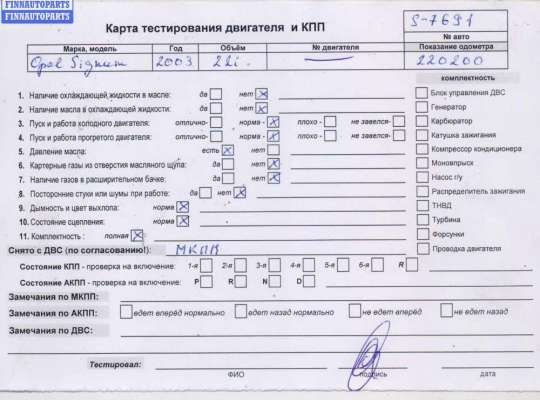 FINNAUTOPARTS
FINNAUTOPARTS
Карта тестирования двигателя и КПП
S-7691
№ авто
Марка, модель Год Объём № двигателя Показание одометра
Opel Signum 2003 2.2i. — 220200
комплектность
1. Наличие охлаждающей жидкости в масле: да нет
2. Наличие масла в охлаждающей жидкости: да нет
3. Пуск и работа холодного двигателя: отлично- норма - плохо - не завелся-
4. Пуск и работа прогретого двигателя: отлично- норма - плохо - не завелся-
5. Давление масла: есть нет
6. Картерные газы из отверстия масляного щупа: да нет
7. Наличие газов в расширительном бачке: да нет
8. Посторонние стуки или шумы при работе: да нет
9. Дымность и цвет выхлопа: норма
10. Состояние сцепления: норма
11. Комплектность : полная
Блок управления ДВС
Генератор
Карбюратор
Катушка зажигания
Компрессор кондиционера
Моновпрыск
Насос г/у
Распределитель зажигания
ТНВД
Турбина
Форсунки
Проводка двигателя
Снято с ДВС (по согласованию!): МКПП
Состояние КПП - проверка на включение: 1-я 2-я 3-я 4-я 5-я 6-я R
Состояние АКПП - проверка на включение: P R N D
Замечания по МКПП:
Замечания по АКПП: едет вперёд нормально едет назад нормально не едет вперёд не едет назад
Замечания по ДВС:
Тестировал:
ФИО подпись дата